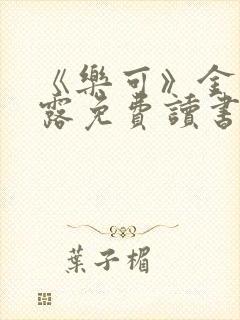 《樂可》金
露免費讀書
葉子楣